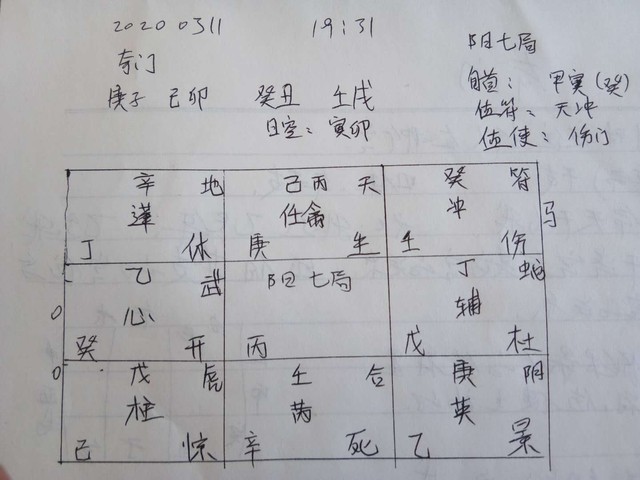 2020 0311 19:31
阳七局
奇门
旬首: 甲寅(癸)
庚子 己卯 癸丑 壬戌
值符: 天冲
日空: 寅卯
值使: 伤门
辛 地 己丙 天 癸 符
蓬 任禽 冲 马
丁 休 庚 生 壬 伤
乙 武 阳七局 丁 蛇
0 心 辅
癸 开 丙 戊 杜
0 戊 虎 壬 合 庚 阴
柱 芮 英
己 惊 辛 死 乙 景